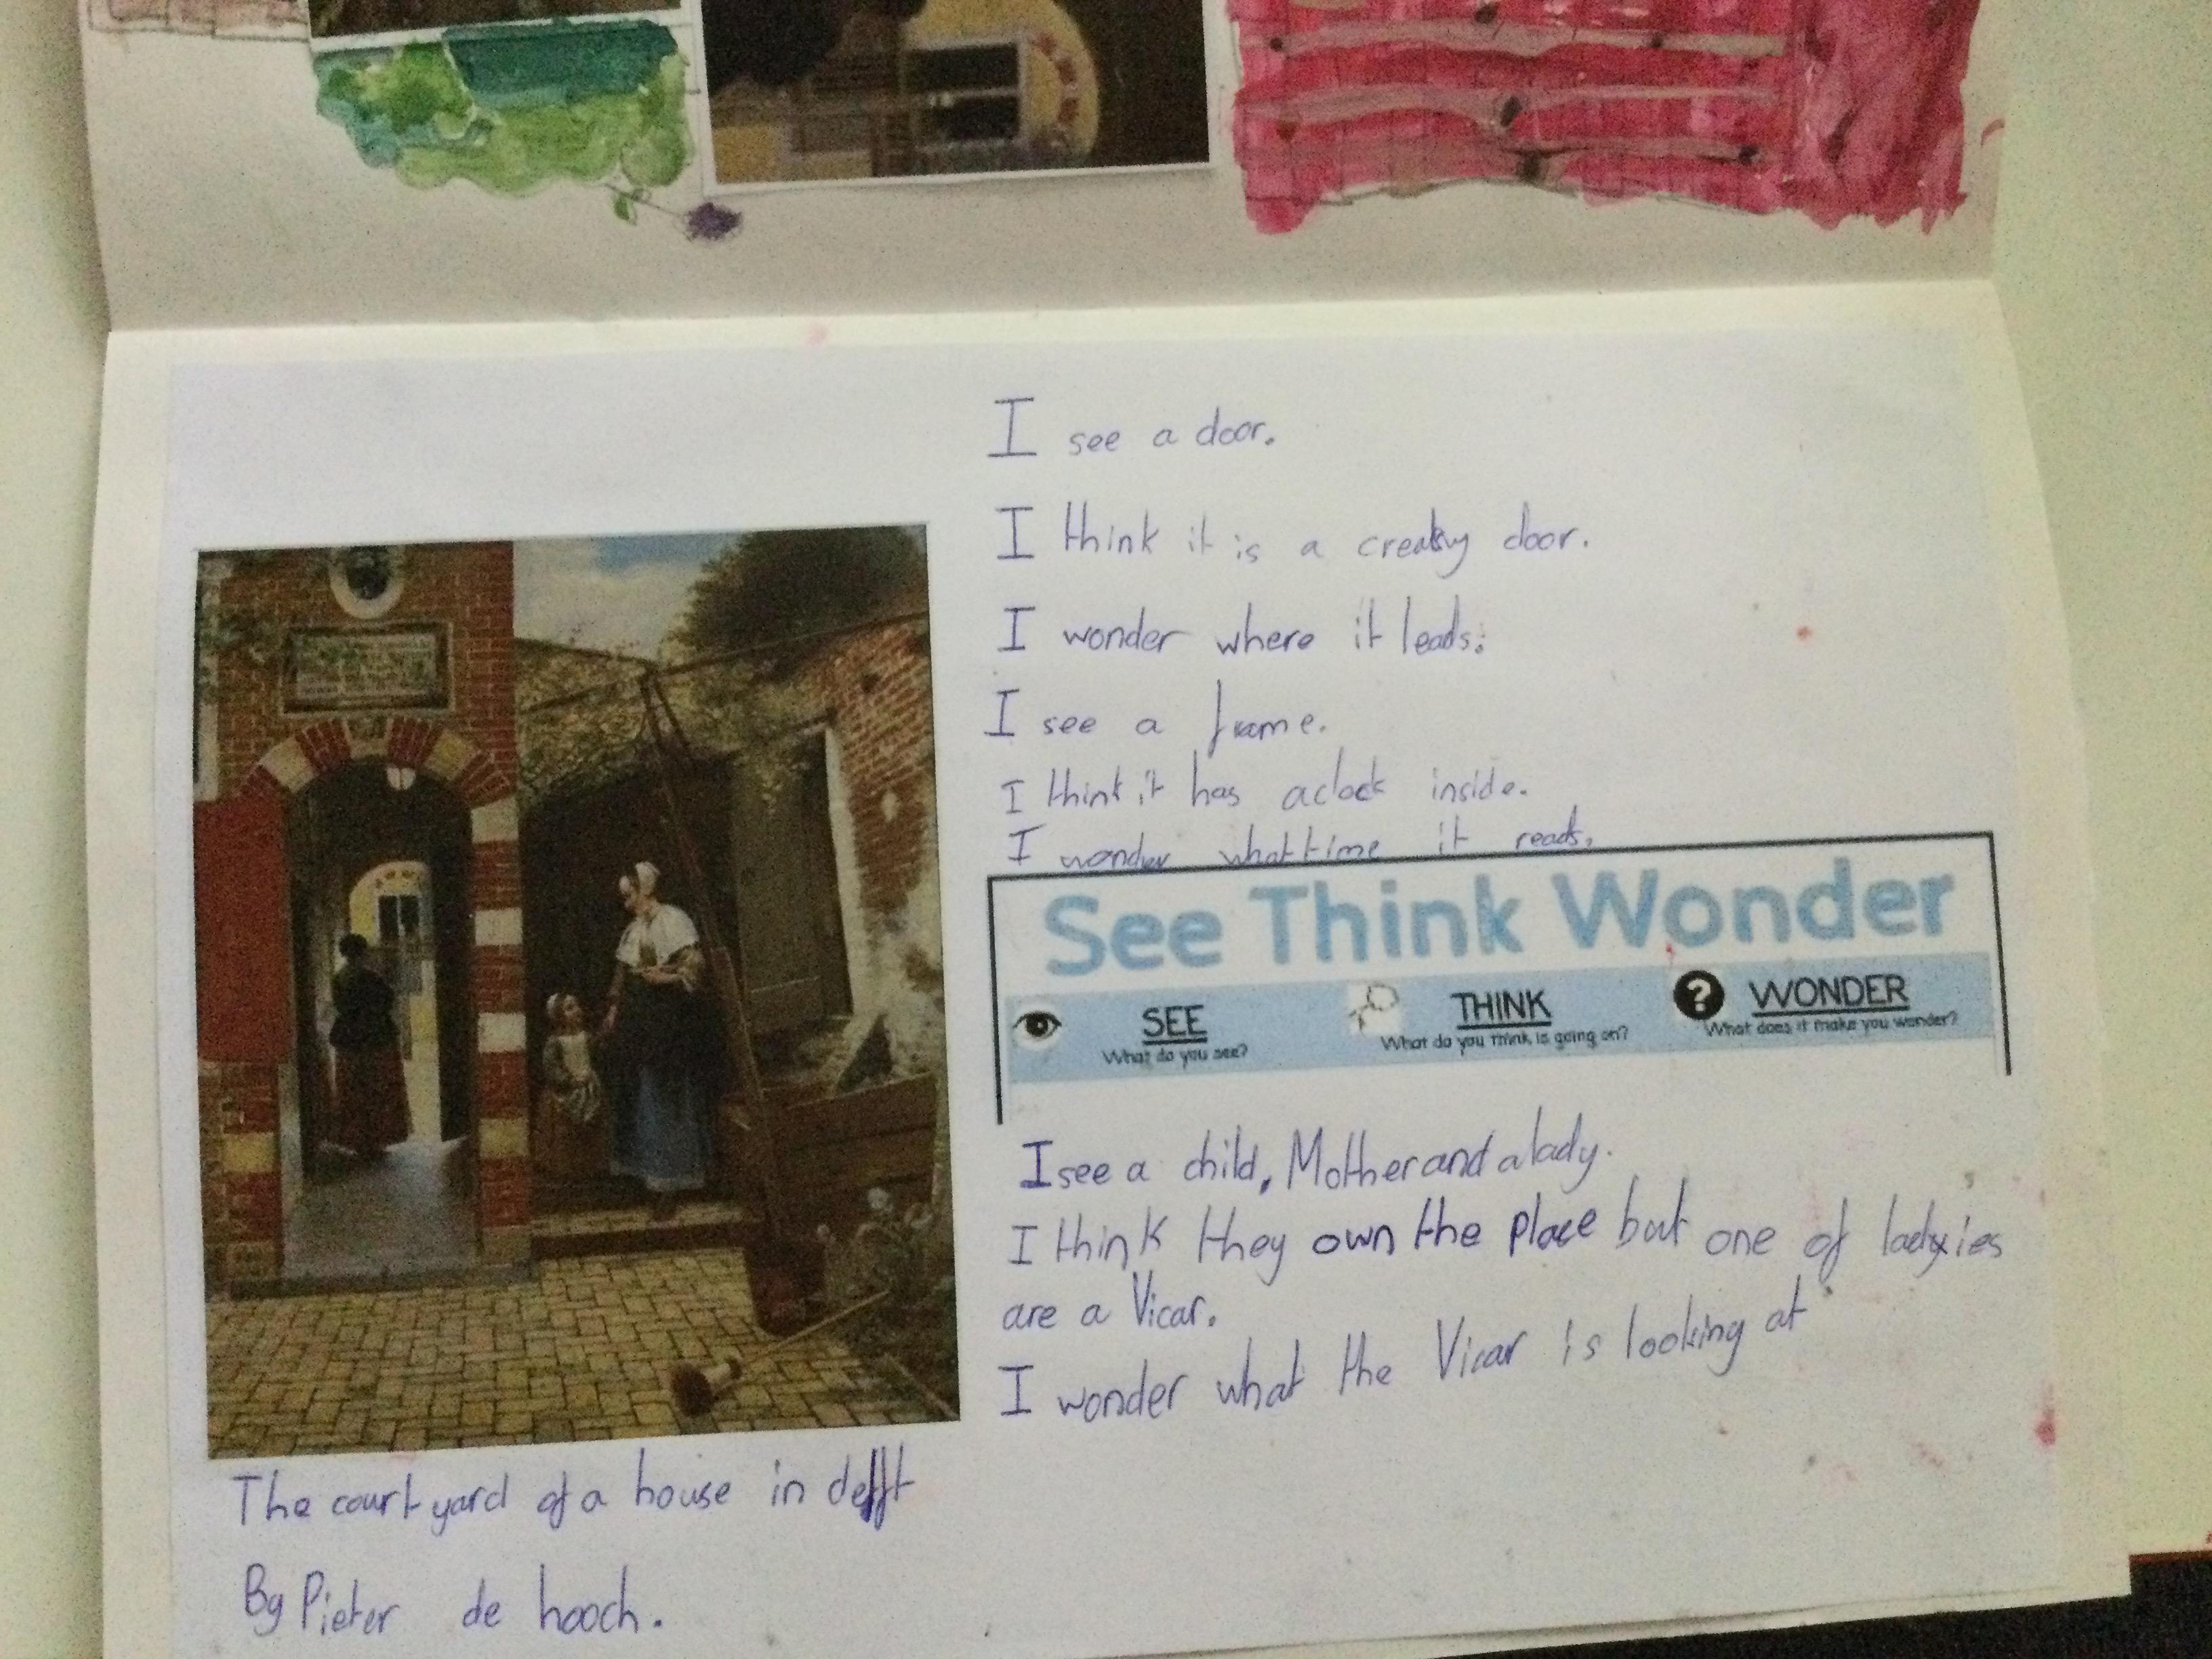 I see a door.
I think it is a creaky door.
I wonder where it leads.
I see a frame.
I think it has a clock inside.
I wonder what time it reads.
See Think Wonder
SEE THINK WONDER
What do you see? What do you think is going on? What does it make you wonder?
I see a child, Mother and a lady.
I think they own the place but one of ladyies
are a Vicar.
I wonder what the Vicar is looking at
The court yard of a house in delft
By Pieter de hooch.